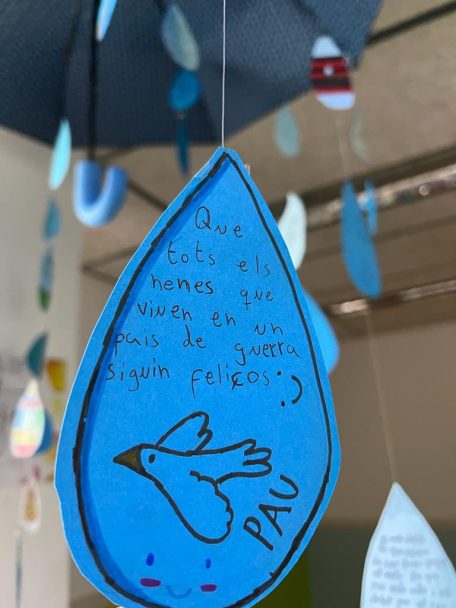 Que
tots els
nenes que
viven en un
pais de guerra
siguin feliços :)
PAU